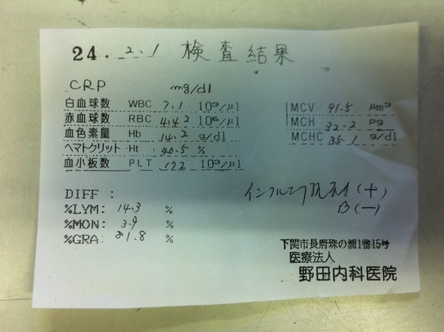 24. 2.1 検査結果
CRP mg/dl
白血球数 WBC 7.1 10³/μl
赤血球数 RBC 4.42 10⁶/μl
血色素量 Hb 14.2 g/dl
ヘマトクリット Ht 40.5 %
血小板数 PLT 10³/μl
MCV 91.5 μm³
MCH 32.2 pg
MCHC 35.1 g/dl
DIFF :
%LYM: 14.3 %
%MON: 3.9 %
%GRA: 81.8 %
インフルエンザ A (+)
B (−)
下関市長府珠の浦1番15号
医療法人
野田内科医院